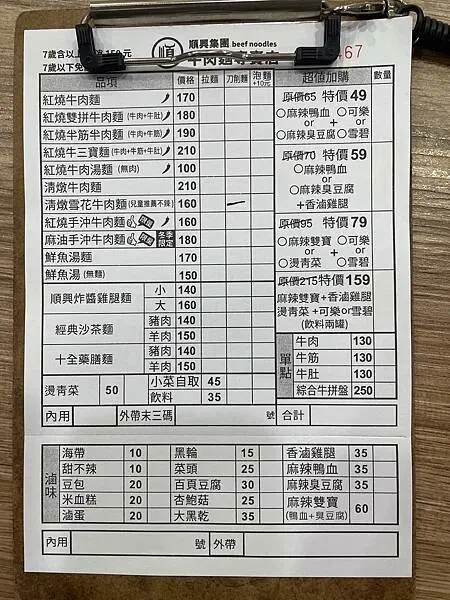 順興集團 beef noodles
7歲含以上
元
7歲以下免
67
品項 價格 拉麵 刀削麵 泡麵+10元
紅燒牛肉麵 170
紅燒雙拼牛肉麵 (牛肉+牛肚) 180
紅燒牛筋半肉麵 (牛肉+牛筋) 190
紅燒牛三寶麵 (牛肉+牛筋+牛肚) 210
紅燒牛肉湯麵 (無肉) 100
清燉牛肉麵 210
清燉雪花牛肉麵 (兒童推薦不辣) 160
紅燒手沖牛肉麵 160
麻油手沖牛肉麵 冬季限定 180
鮮魚湯麵 170
鮮魚湯 (無麵) 150
順興炸醬雞腿麵 小 140
大 160
經典沙茶麵 豬肉 140
羊肉 150
十全藥膳麵 豬肉 140
羊肉 150
燙青菜 50 小菜自取 45
飲料 35
超值加購 數量
原價65 特價49
○麻辣鴨血 ○可樂
or + or
○麻辣臭豆腐 ○雪碧
原價70 特價59
○麻辣鴨血
or
○麻辣臭豆腐
+香滷雞腿
原價95 特價79
○麻辣雙寶 ○可樂
or + or
○燙青菜 ○雪碧
原價215 特價159
麻辣雙寶+香滷雞腿
燙青菜 +可樂or雪碧
(飲料兩罐)
單點
牛肉 130
牛筋 130
牛肚 130
綜合牛拼盤 250
內用 外帶末三碼 號 合計
滷味
海帶 10 黑輪 15 香滷雞腿 35
甜不辣 10 菜頭 25 麻辣鴨血 35
豆包 20 百頁豆腐 30 麻辣臭豆腐 35
米血糕 20 杏鮑菇 25 麻辣雙寶 (鴨血+臭豆腐) 60
滷蛋 20 大黑乾 35
內用 號 外帶